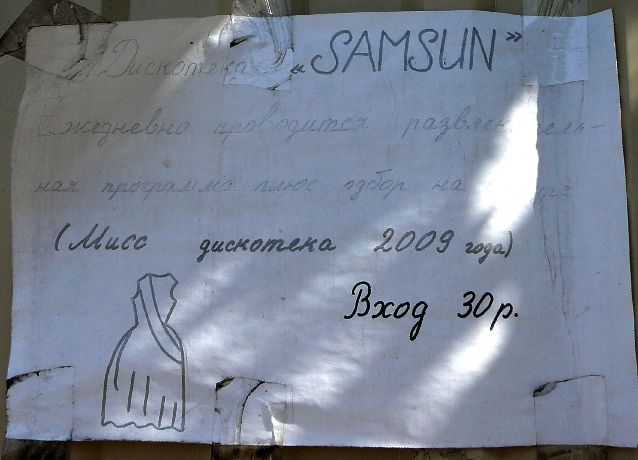 Дискотека «SAMSUN»
Ежедневно проводится развлекатель-
ная программа плюс одбор на
(Мисс дискотека 2009 года)
Вход 30р.